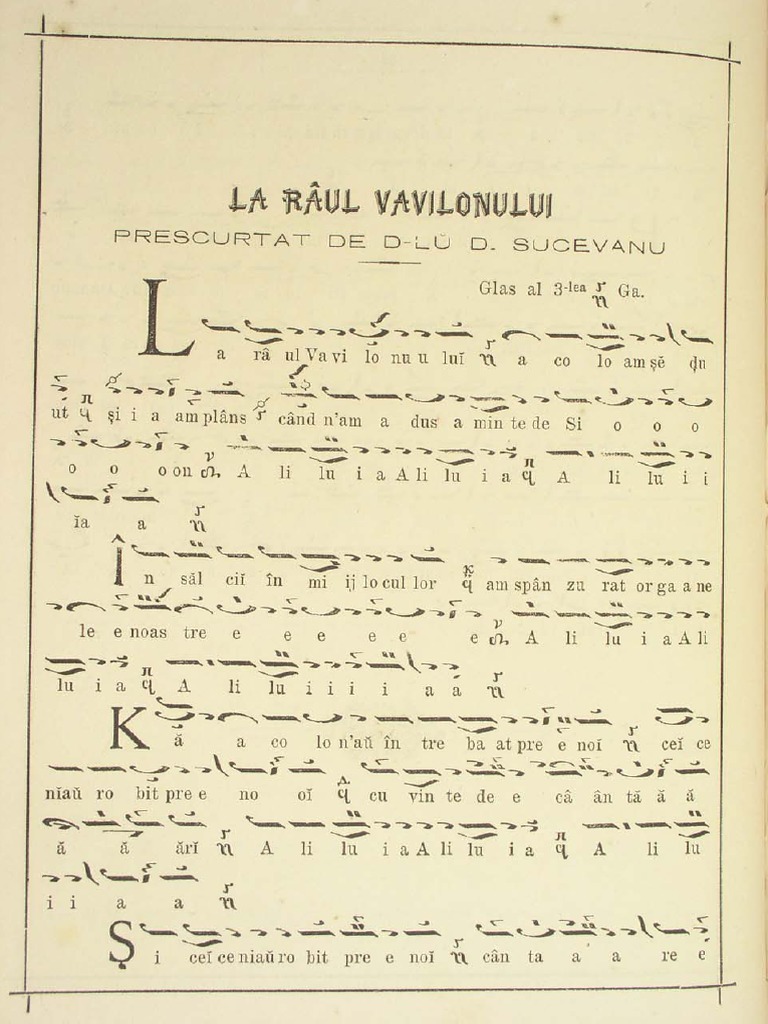 LA RÂUL VAVILONULUI
PRESCURTAT DE D-LŬ D. SUCEVANU
Glas al 3-lea Ga.
L a râ ul Va vi lo nu u luĭ a co lo am șĕ
ut și i a am plâns când n'am a dus a min te de Si o o o
o o o on A li lu i a A li lu i a A li lu i i
ĭa a
Î n săl ciĭ în mi ij lo cul lor am spân zu rat or ga a ne
le e noas tre e e e e e e A li lu i a A li
lu i a A li lu i i i i a a
K ă a co lo n'aŭ în tre ba at pre e noĭ ceĭ ce
niaŭ ro bit pre e no oĭ cu vin te de e câ ân tă ă ă
ă ă ărĭ A li lu i a A li lu i a A li lu
i i a a
Ș i ceĭ ce niaŭ ro bit pre e noĭ cân ta a a re e